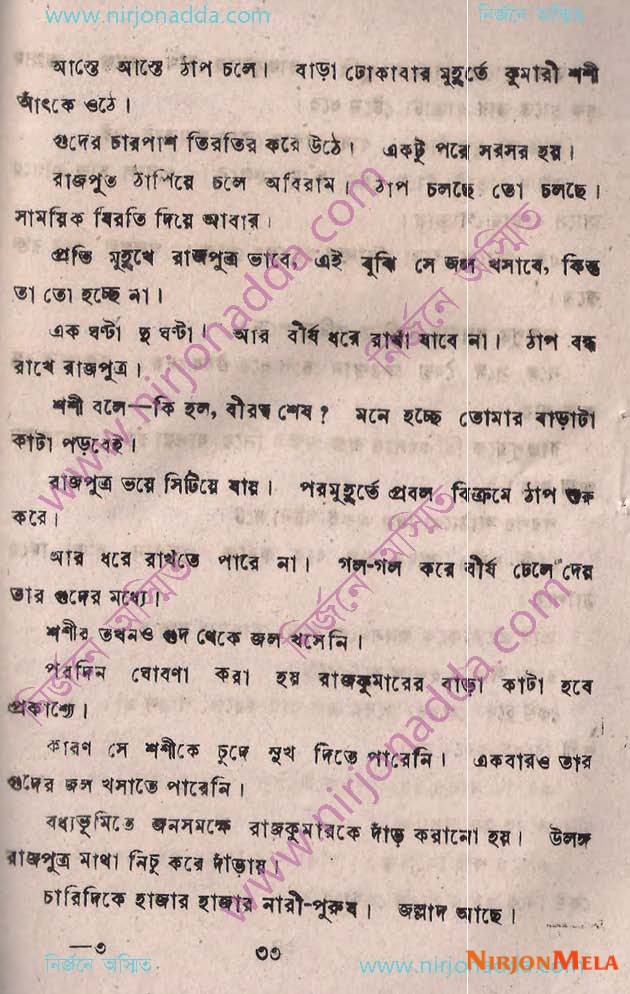 www.nirjonadda.com
নির্জনে অস্মিত
আস্তে আস্তে ঠাপ চলে। বাড়া ঢোকাবার মুহূর্তে কুমারী শশী
আঁৎকে ওঠে।
গুদের চারপাশ তিরতির করে উঠে। একটু পরে সরসর হয়।
রাজপুত্র ঠাপিয়ে চলে অবিরাম। ঠাপ চলছে তো চলছে।
সাময়িক বিরতি দিয়ে আবার।
প্রতি মুহূর্থে রাজপুত্র ভাবে, এই বুঝি সে জল খসাবে, কিন্তু
তা তো হচ্ছে না।
এক ঘণ্টা দু ঘণ্টা। আর বীর্য ধরে রাখা যাবে না। ঠাপ বন্ধ
রাখে রাজপুত্র।
শশী বলে—কি হল, বীরত্ব শেষ? মনে হচ্ছে তোমার বাড়াটা
কাটা পড়বেই।
রাজপুত্র ভয়ে সিটিয়ে যায়। পরমুহূর্তে প্রবল বিক্রমে ঠাপ শুরু
করে।
আর ধরে রাখতে পারে না। গল-গল করে বীর্য ঢেলে দেয়
তার গুদের মধ্যে।
শশীর তখনও গুদ থেকে জল খসেনি।
পরদিন ঘোষণা করা হয় রাজকুমারের বাড়া কাটা হবে
প্রকাশ্যে।
কারণ সে শশীকে চুদে সুখ দিতে পারেনি। একবারও তার
গুদের জল খসাতে পারেনি।
বধ্যভূমিতে জনসমক্ষে রাজকুমারকে দাঁড় করানো হয়। উলঙ্গ
রাজপুত্র মাথা নিচু করে দাঁড়ায়।
চারিদিকে হাজার হাজার নারী-পুরুষ। জল্লাদ আছে।
—৩
৩৩
নির্জনে অস্মিত
www.nirjonadda.com
NIRJONMELA
www.nirjonadda.com
নির্জনে অস্মিত
নির্জনে অস্মিত
নির্জনে অস্মিত
www.nirjonadda.com